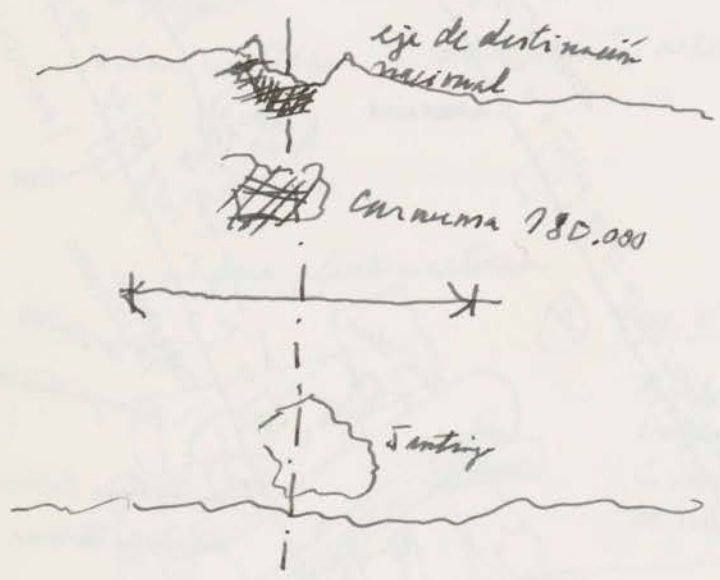 eje de destinación
nacional
Curauma 180.000
Santiago